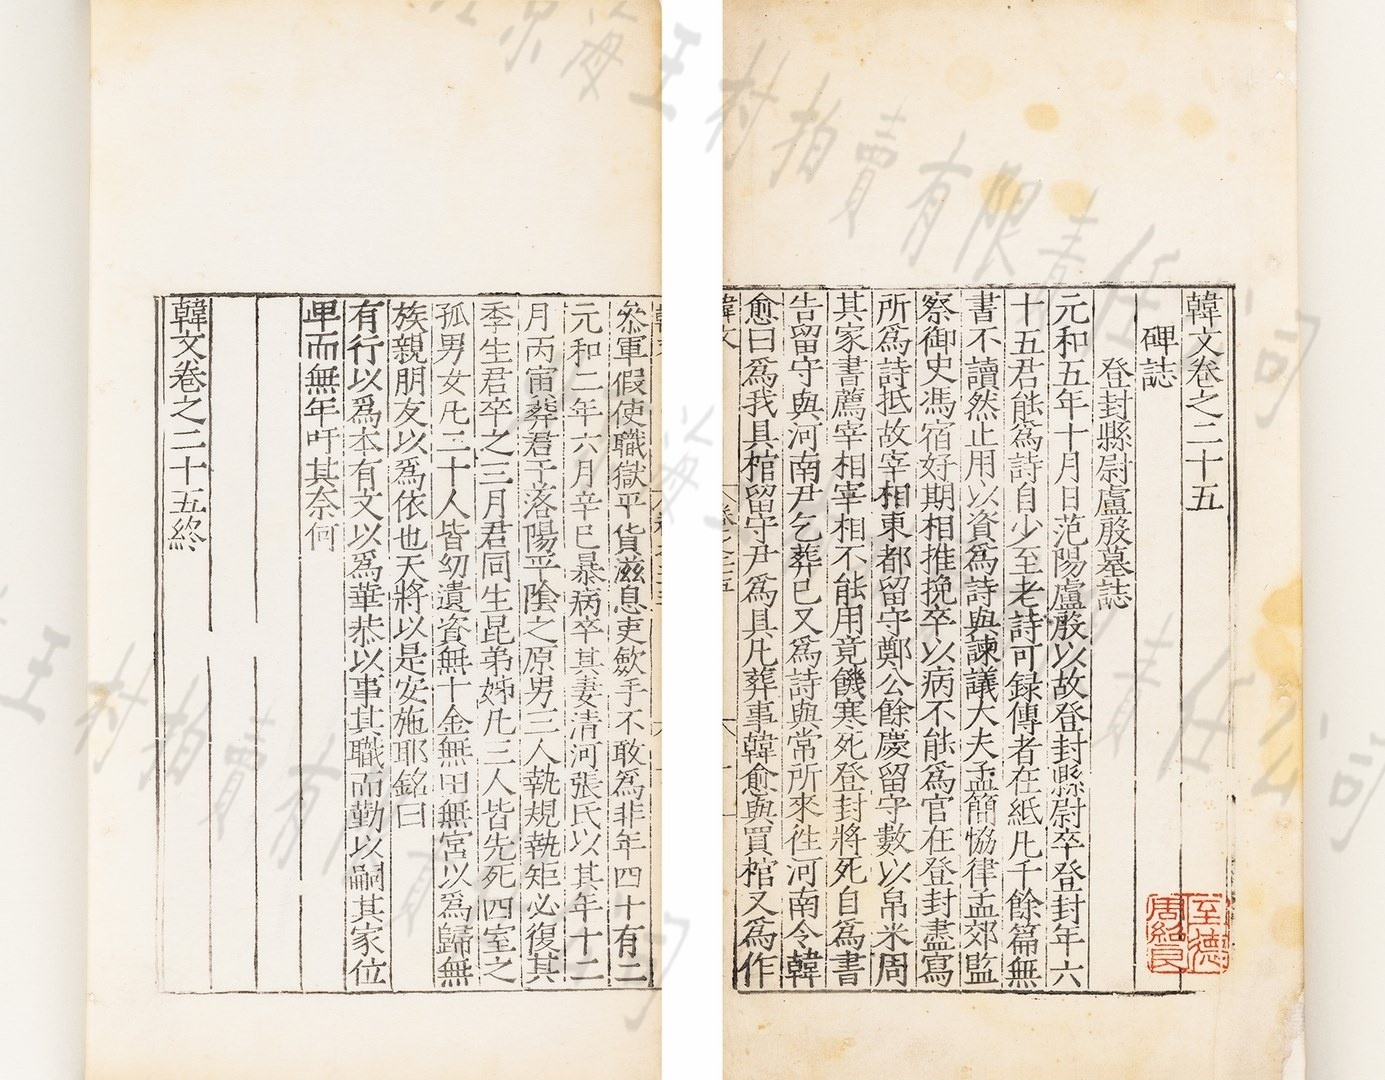 韓文卷之二十五
碑誌
登封縣尉盧殷墓誌
元和五年十月日范陽盧殷以故登封縣尉卒登封年六
十五君能爲詩自少至老詩可録傳者在紙凡千餘篇無
書不讀然止用以資爲詩與諫議大夫孟簡恊律孟郊監
察御史馮宿好期相推挽卒以病不能爲官在登封盡寫
所爲詩抵故宰相東都留守鄭公餘慶留守數以帛米周
其家書薦宰相宰相不能用竟饑寒死登封將死自爲書
告留守與河南尹乞葬已又爲詩與常所來徃河南令韓
愈曰爲我具棺留守尹爲具凡葬事韓愈與買棺又爲作
韓文
卷之二十五
至德周紹良
叅軍假使職獄平貨滋息吏斂手不敢爲非年四十有二
元和二年六月辛巳暴病卒其妻清河張氏以其年十二
月丙寅葬君于洛陽平隂之原男三人執規執矩必復其
季生君卒之三月君同生昆弟姊凡三人皆先死四室之
孤男女凡二十人皆㓜遺資無十金無田無宫以爲歸無
族親朋友以爲依也天將以是安施耶銘曰
有行以爲本有文以爲華恭以事其職而勤以嗣其家位
卑而無年吁其奈何
韓文卷之二十五終
北京海王村拍賣有限責任公司